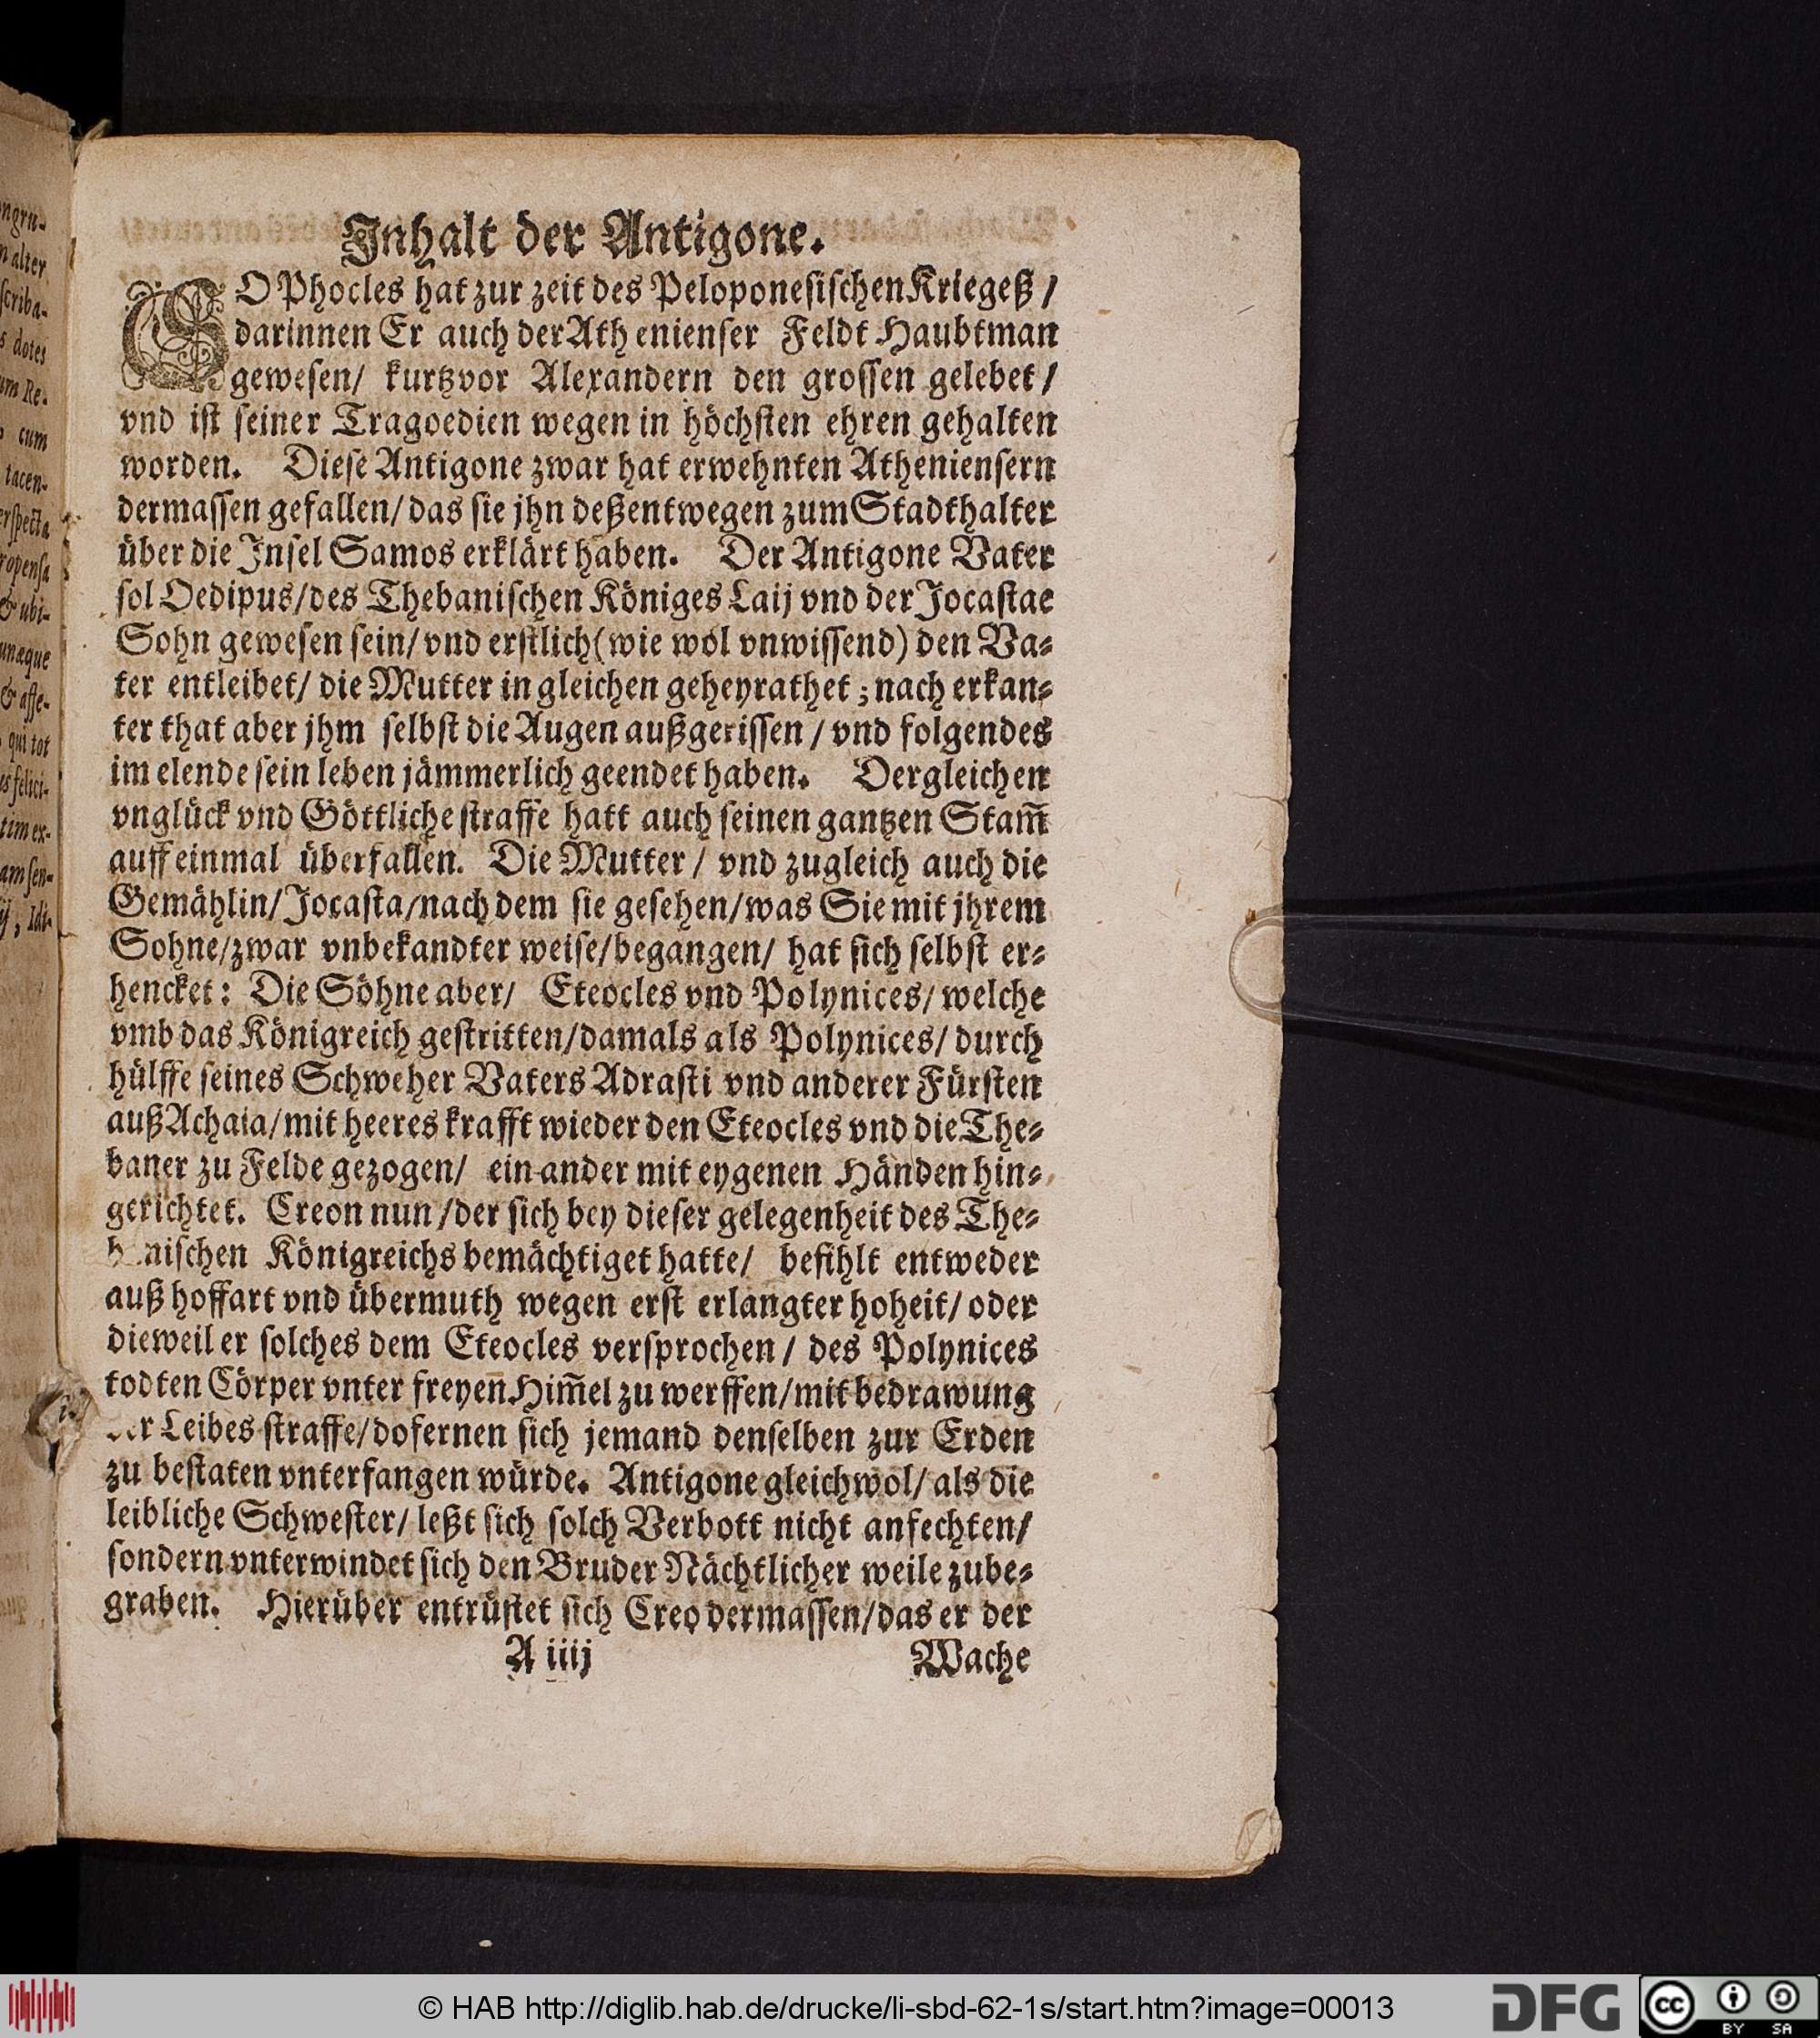 Inhalt der Antigone.
SOPhocles hat zur zeit des Peloponesischen Kriegeß /
darinnen Er auch der Ath enienser Feldt Haubtman
gewesen/ kurtzvor Alexandern den grossen gelebet /
vnd ist seiner Tragoedien wegen in höchsten ehren gehalten
worden. Diese Antigone zwar hat erwehnten Atheniensern
dermassen gefallen/das sie jhn deßentwegen zum Stadthalter
über die Insel Samos erklärt haben. Der Antigone Vater
sol Oedipus/des Thebanischen Königes Laij vnd der Jocastae
Sohn gewesen sein/vnd erstlich(wie wol vnwissend) den Va⸗
ter entleibet/ die Mutter in gleichen geheyrathet ; nach erkan⸗
ter that aber jhm selbst die Augen außgerissen / vnd folgendes
im elende sein leben jämmerlich geendet haben. Dergleichen
vnglück vnd Göttliche straffe hatt auch seinen gantzen Stam̃
auff einmal überfallen. Die Mutter / vnd zugleich auch die
Gemählin/Jocasta/nach dem sie gesehen/was Sie mit jhrem
Sohne/zwar vnbekandter weise/begangen/ hat sich selbst er⸗
hencket: Die Söhne aber/ Eteocles vnd Polynices/welche
vmb das Königreich gestritten/damals als Polynices/ durch
hülffe seines Schweher Vaters Adrasti vnd anderer Fürsten
auß Achaia/mit heeres krafft wieder den Eteocles vnd die The⸗
baner zu Felde gezogen/ ein ander mit eygenen Händen hin⸗
gerichtet. Creon nun/der sich bey dieser gelegenheit des The⸗
nischen Königreichs bemächtiget hatte/ befihlt entweder
auß hoffart vnd übermuth wegen erst erlangter hoheit/ oder
dieweil er solches dem Eteocles versprochen / des Polynices
todten Cörper vnter freyen Him̃el zu werffen/mit bedrawung
Leibes straffe/dofernen sich jemand denselben zur Erden
zu bestaten vnterfangen würde. Antigone gleichwol/ als die
leibliche Schwester/ leßt sich solch Verbott nicht anfechten/
sondern vnterwindet sich den Bruder Nächtlicher weile zube⸗
graben. Hierüber entrüstet sich Creo dermassen/das er der
A iiij Wache
ngru-
n alter
scriba-
s dotes
um Re-
cum
tacen-
erspecta
ropensa
& ubi-
unæque
& affe-
qui tot
es felici-
tim ex-
am sen-
ij, Idi-
© HAB http://diglib.hab.de/drucke/li-sbd-62-1s/start.htm?image=00013
DFG
cc
BY SA